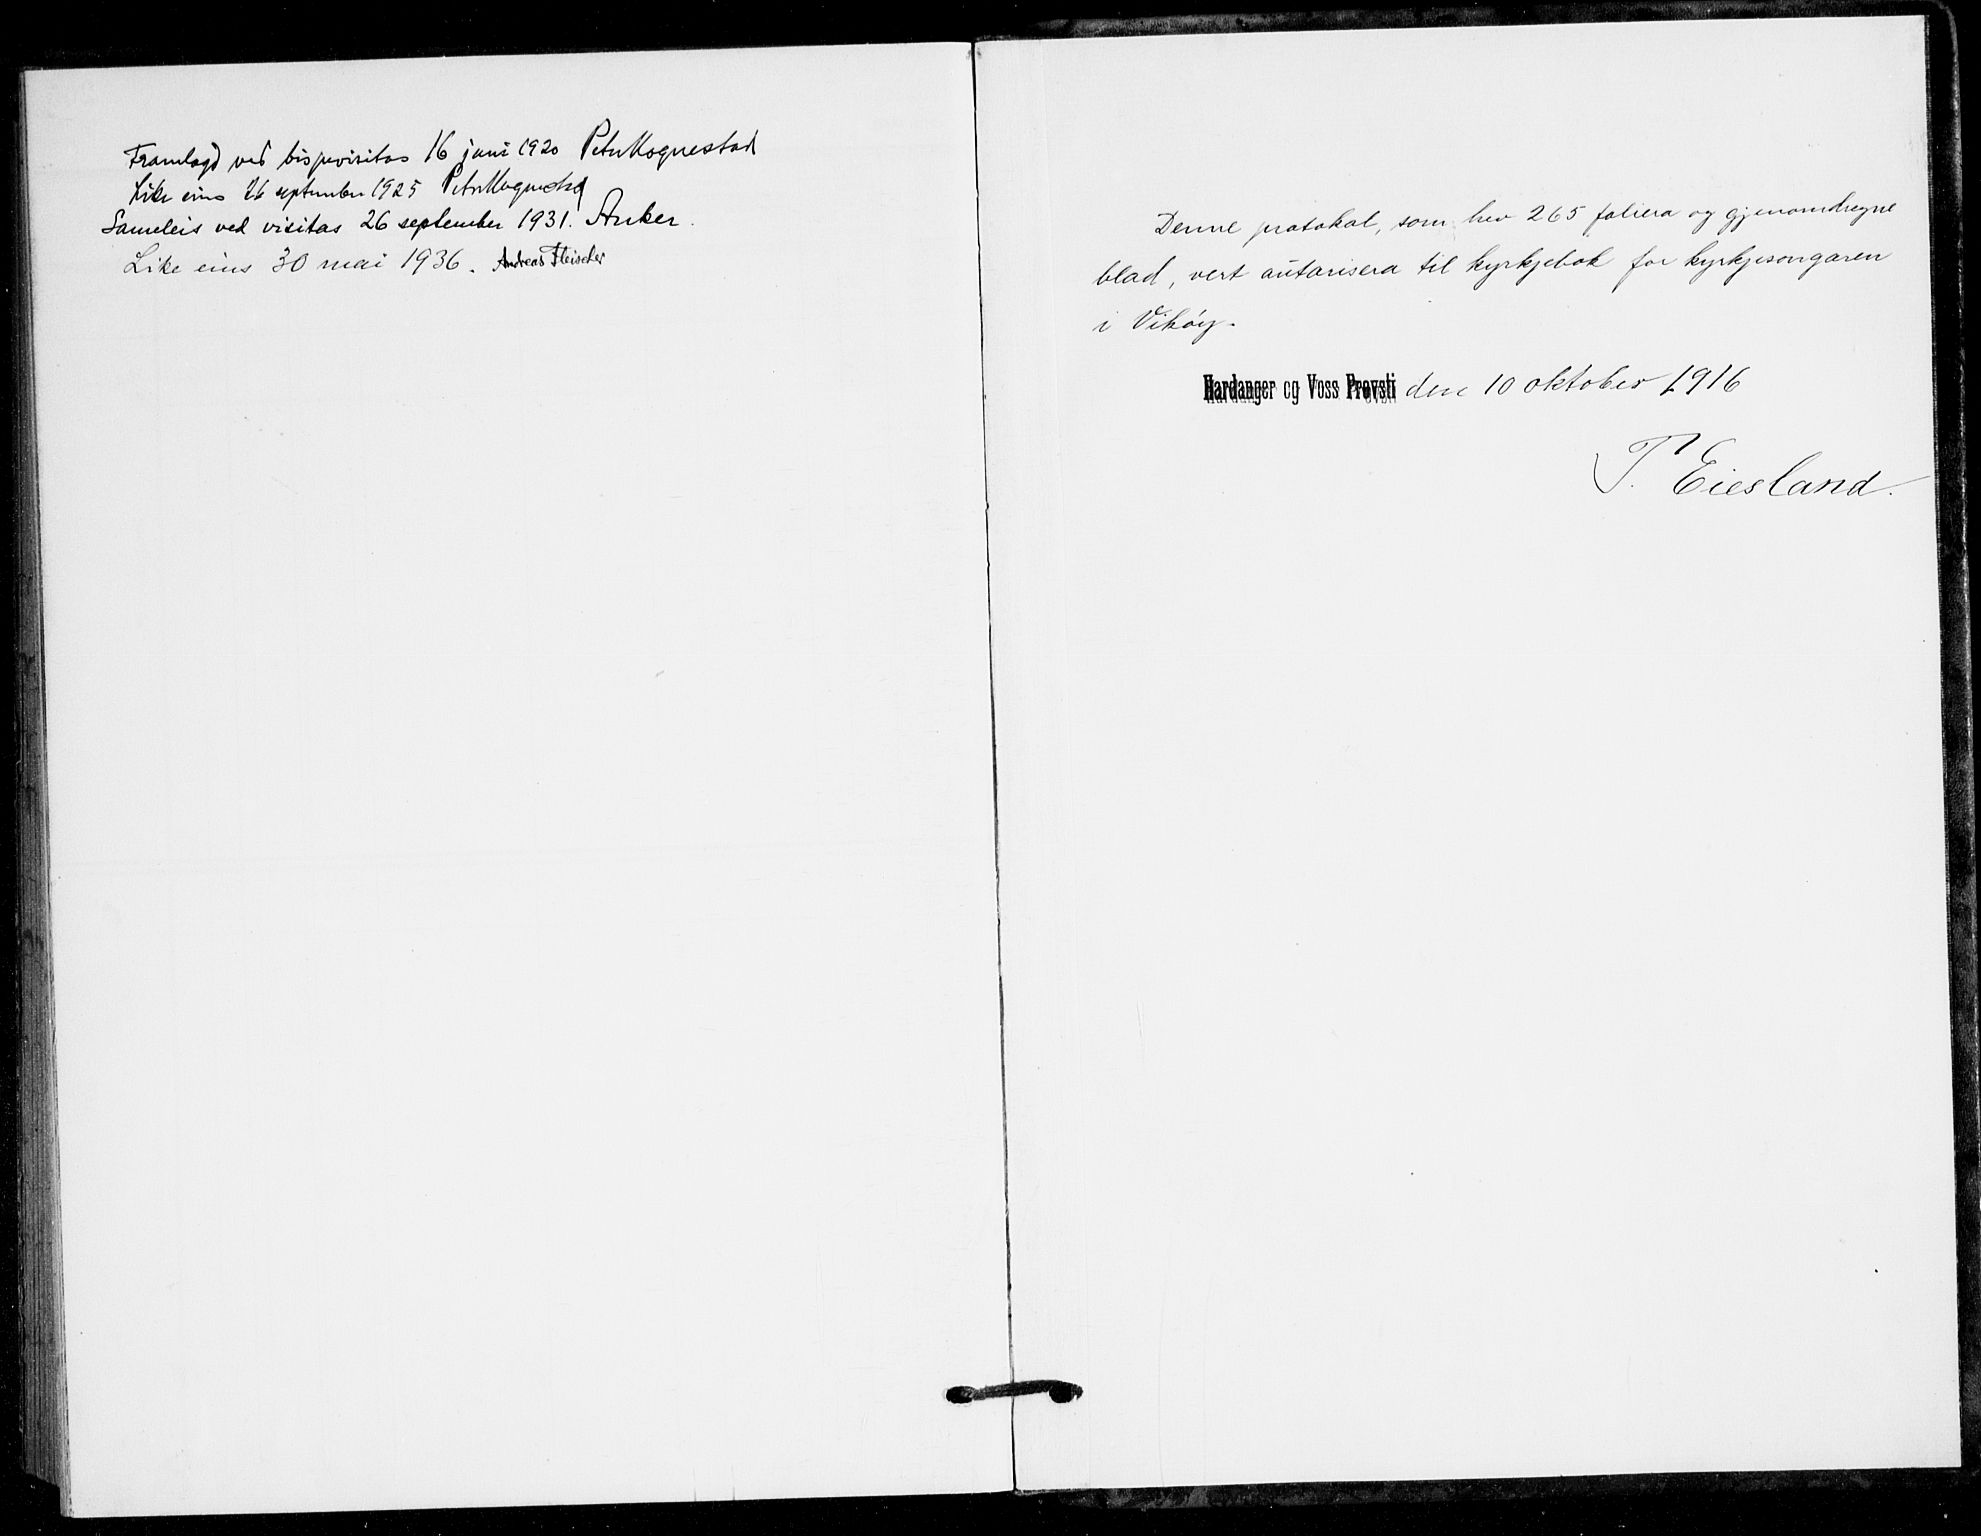 Framlagd ved bispevisitas 16 juni 1920 Peter Hognestad
Like eins 26 september 1925 Peter Hognestad
Sameleis ved visitas 26 september 1931. Anker.
Like eins 30 mai 1936. Andreas Fleischer
Denne protokol, som hev 265 foliera og gjenomdregne
blad, vert autorisera til kyrkjebok for kyrkjesongaren
i Vikøy.
Hardanger og Voss Prøvsti den 10 oktober 1916
T. Eiesland.